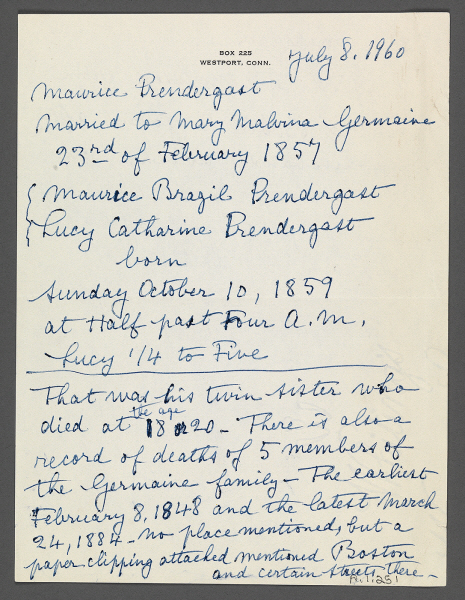 BOX 225
WESTPORT, CONN.
July 8. 1960
Maurice Prendergast
Married to Mary Malvina Germaine
23rd of February 1857
{ Maurice Brazil Prendergast
{ Lucy Catharine Prendergast
born
Sunday October 10, 1859
at Half past Four A.M.
Lucy 1/4 to Five
That was his twin sister who
died at the age 18 or 20 - There is also a
record of deaths of 5 members of
the Germaine family - The earliest
February 8, 1848 and the latest March
24, 1884 - no place mentioned, but a
paper clipping attached mentioned Boston
and certain streets there -